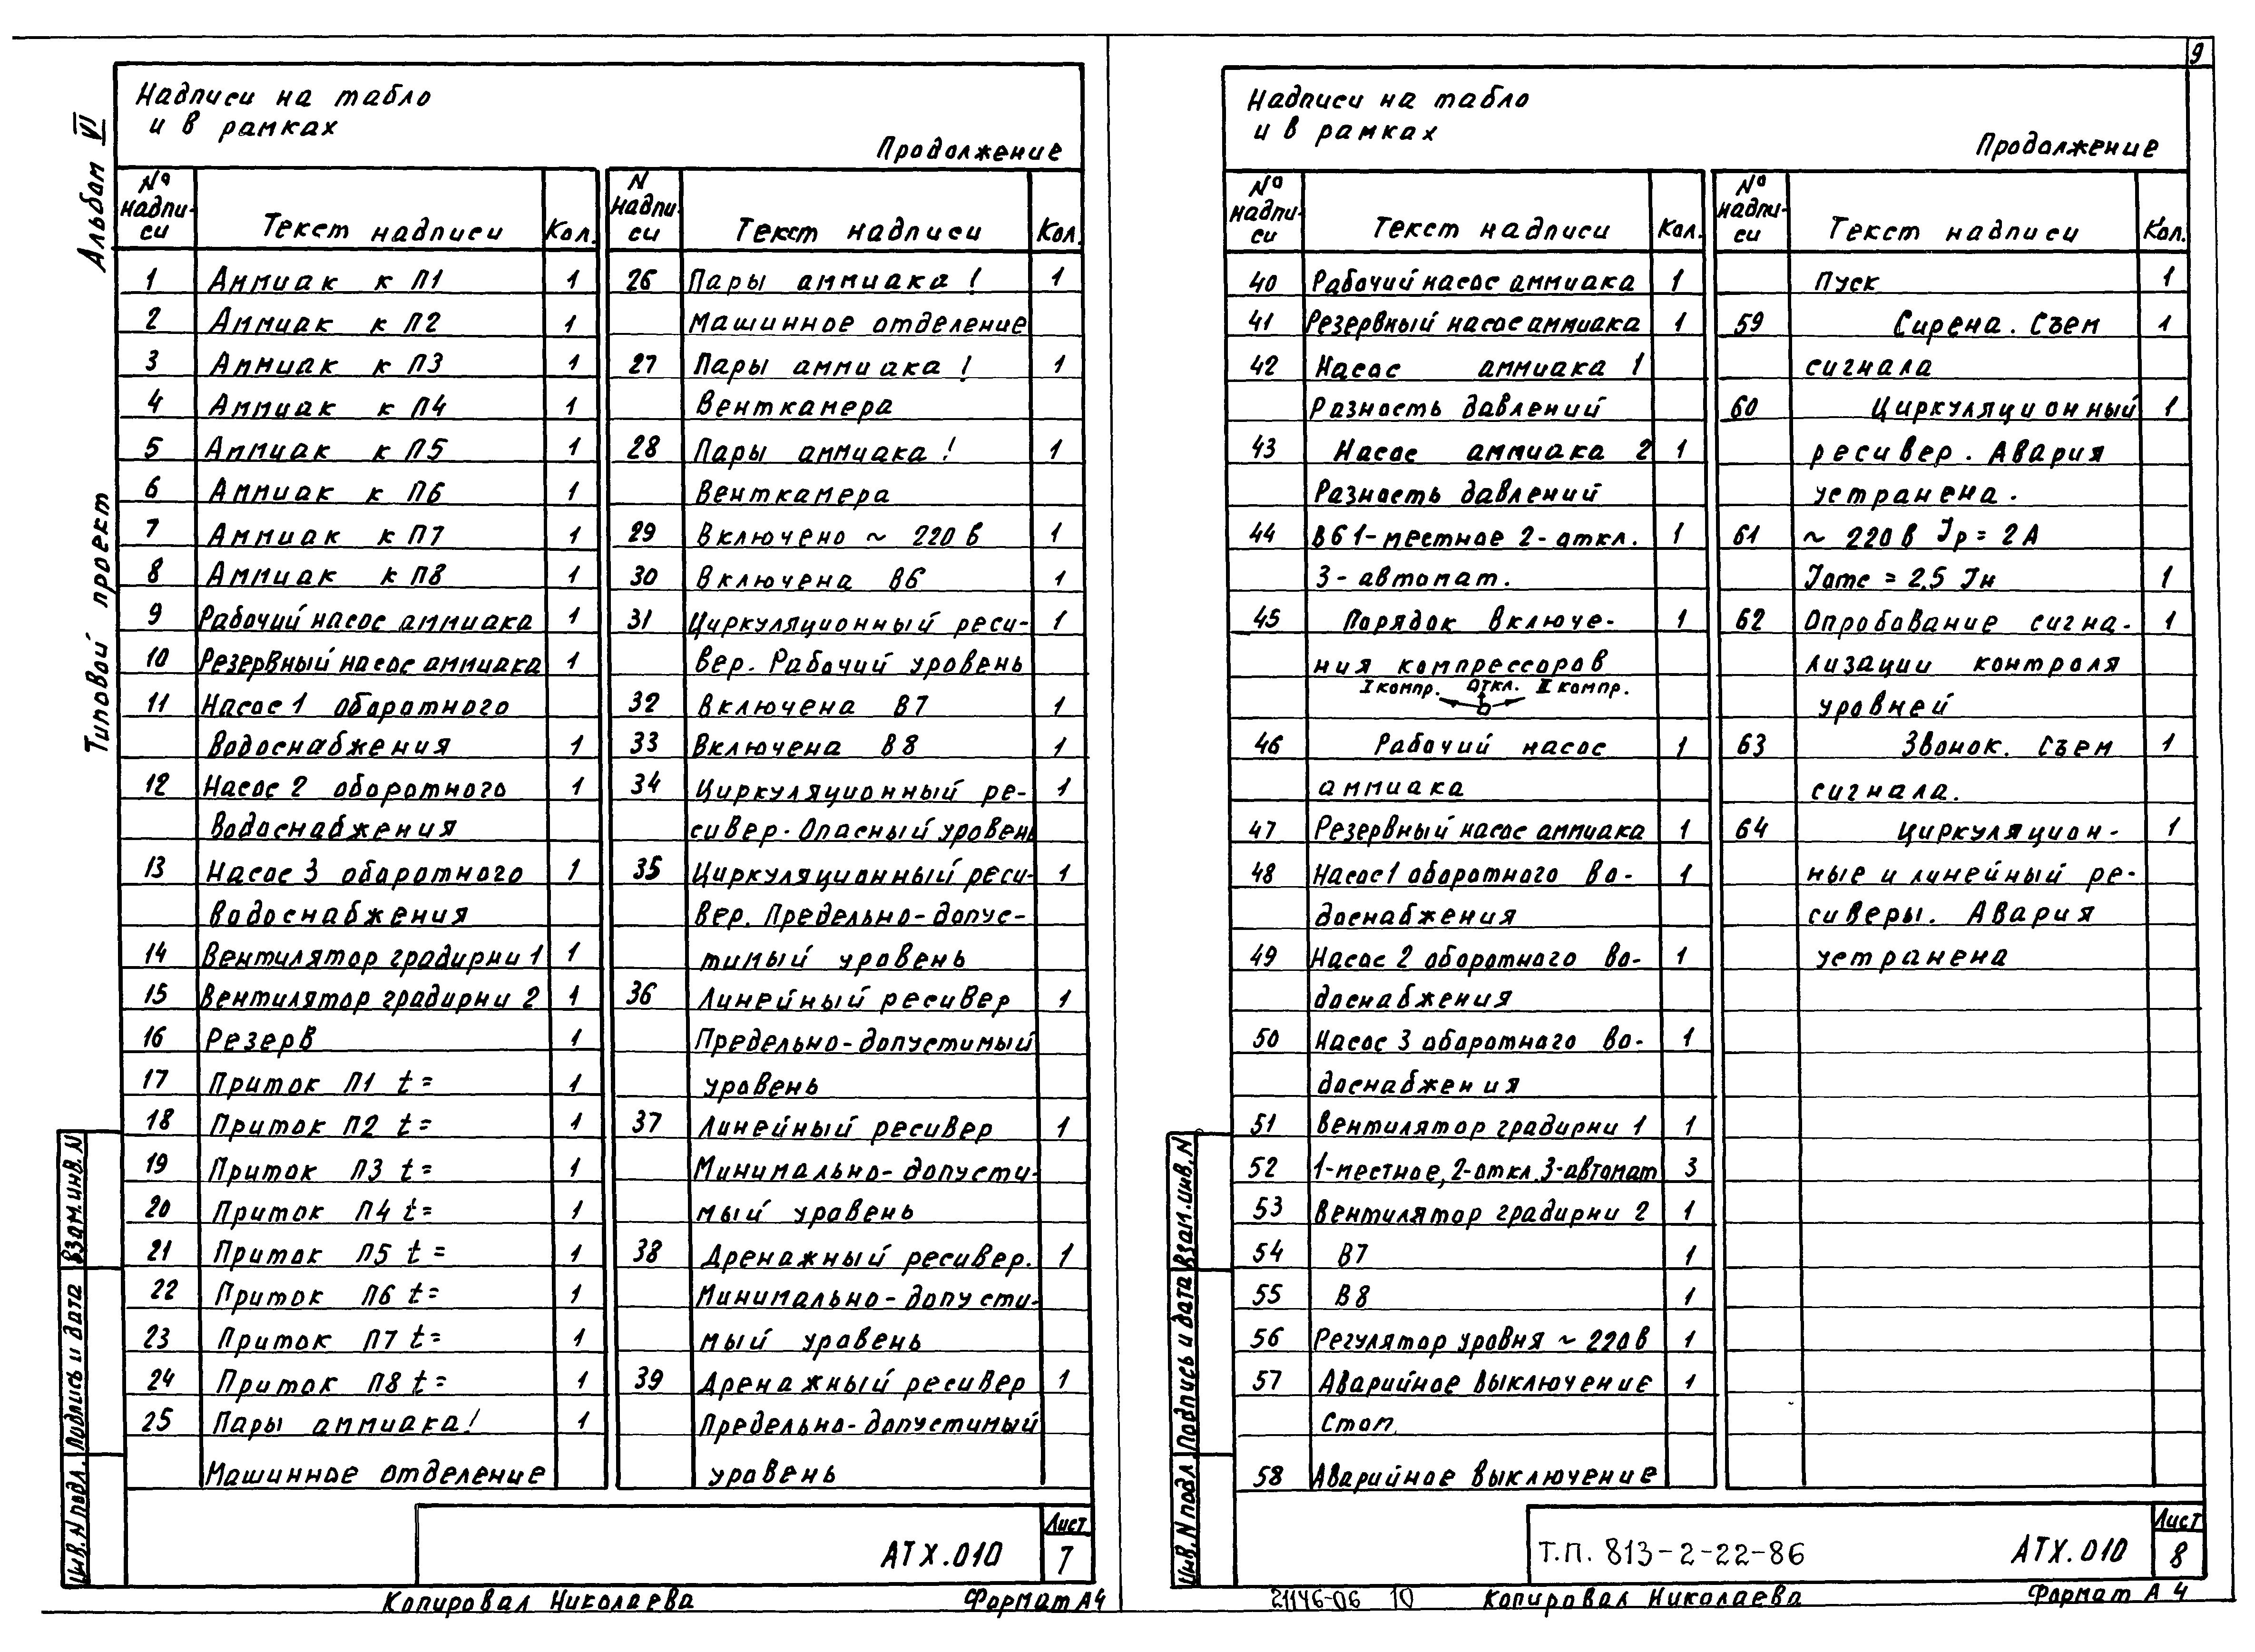 9
Альбом VI
Типовой проект
Надписи на табло
и в рамках
Продолжение
№ надпи-си Текст надписи Кол.
1 Аммиак к П1 1
2 Аммиак к П2 1
3 Аммиак к П3 1
4 Аммиак к П4 1
5 Аммиак к П5 1
6 Аммиак к П6 1
7 Аммиак к П7 1
8 Аммиак к П8 1
9 Рабочий насос аммиака 1
10 Резервный насос аммиака 1
11 Насос 1 оборотного
водоснабжения 1
12 Насос 2 оборотного 1
водоснабжения
13 Насос 3 оборотного 1
водоснабжения
14 Вентилятор градирни 1 1
15 Вентилятор градирни 2 1
16 Резерв 1
17 Приток П1 t= 1
18 Приток П2 t= 1
19 Приток П3 t= 1
20 Приток П4 t= 1
21 Приток П5 t= 1
22 Приток П6 t= 1
23 Приток П7 t= 1
24 Приток П8 t= 1
25 Пары аммиака! 1
Машинное отделение
N надпи-си Текст надписи Кол.
26 Пары аммиака! 1
машинное отделение
27 Пары аммиака! 1
Венткамера
28 Пары аммиака! 1
Венткамера
29 Включено ~ 220 в 1
30 Включена В6 1
31 Циркуляционный реси- 1
вер. Рабочий уровень
32 Включена В7 1
33 Включена В8 1
34 Циркуляционный ре- 1
сивер. Опасный уровень
35 Циркуляционный реси- 1
вер. Предельно-допус-
тимый уровень
36 Линейный ресивер 1
Предельно-допустимый
уровень
37 Линейный ресивер 1
Минимально-допусти-
мый уровень
38 Дренажный ресивер. 1
Минимально-допусти-
мый уровень
39 Дренажный ресивер 1
Предельно-допустимый
уровень
Взам.инв.N
Подпись и дата
Инв.N подл.
АТХ.010
Лист
7
Копировал Николаева Формат А4
Надписи на табло
и в рамках
Продолжение
№ надпи-си Текст надписи Кол.
40 Рабочий насос аммиака 1
41 Резервный насос аммиака 1
42 Насос аммиака 1
Разность давлений
43 Насос аммиака 2 1
Разность давлений
44 В6 1-местное 2-откл. 1
3-автомат.
45 Порядок включе- 1
ния компрессоров
I компр. откл. II компр.
46 Рабочий насос 1
аммиака
47 Резервный насос аммиака 1
48 Насос 1 оборотного во- 1
доснабжения
49 Насос 2 оборотного во- 1
доснабжения
50 Насос 3 оборотного во- 1
доснабжения
51 Вентилятор градирни 1 1
52 1-местное, 2-откл. 3-автомат 3
53 Вентилятор градирни 2 1
54 В7 1
55 В8 1
56 Регулятор уровня ~ 220 в 1
57 Аварийное выключение 1
Стоп.
58 Аварийное выключение
№ надпи-си Текст надписи Кол.
Пуск 1
59 Сирена. Съем 1
сигнала
60 Циркуляционный 1
ресивер. Авария
устранена.
61 ~ 220 в Iр = 2А
Iотс = 2,5 Iн 1
62 Опробование сигна- 1
лизации контроля
уровней
63 Звонок. Съем 1
сигнала.
64 Циркуляцион- 1
ные и линейный ре-
сиверы. Авария
устранена
Взам.инв.N
Подпись и дата
Инв.N подл.
Т.П. 813-2-22-86 АТХ.010
Лист
8
21146-06 10 Копировал Николаева Формат А4